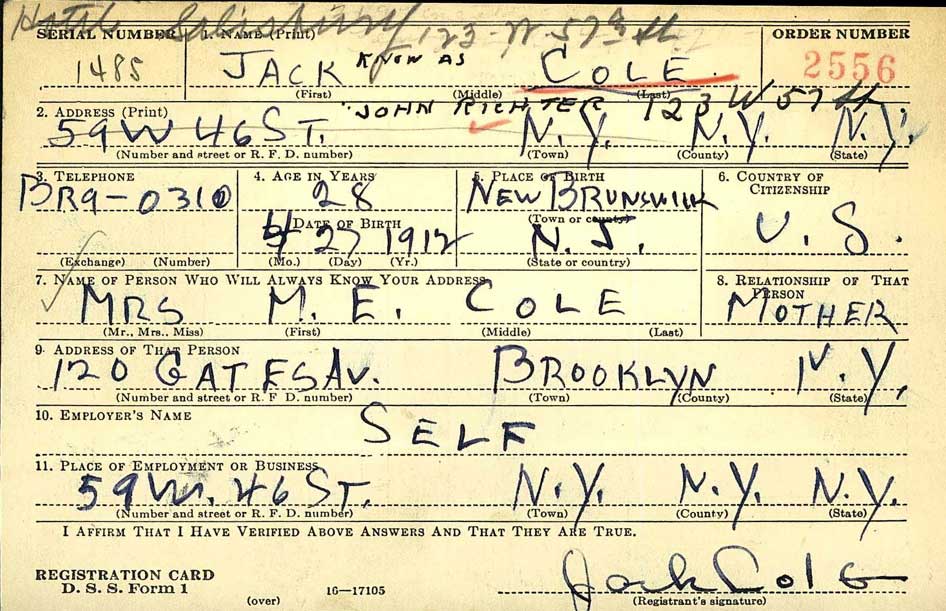 Hotel Salisbury 123 W 57th St
SERIAL NUMBER 1. NAME (Print) ORDER NUMBER
1485 JACK KNOW AS COLE 2556
(First) (Middle) (Last)
JOHN RICHTER 123 W 57 St.
2. ADDRESS (Print)
59 W 46 ST. N.Y. N.Y. N.Y.
(Number and street or R. F. D. number) (Town) (County) (State)
3. TELEPHONE 4. AGE IN YEARS 5. PLACE OF BIRTH 6. COUNTRY OF CITIZENSHIP
BR9-0310 28 NEW BRUNSWICK
DATE OF BIRTH (Town or county)
4 27 1912 N.J. U.S.
(Exchange) (Number) (Mo.) (Day) (Yr.) (State or country)
7. NAME OF PERSON WHO WILL ALWAYS KNOW YOUR ADDRESS 8. RELATIONSHIP OF THAT PERSON
MRS M. E. COLE MOTHER
(Mr., Mrs., Miss) (First) (Middle) (Last)
9. ADDRESS OF THAT PERSON
120 GATES AV. BROOKLYN N.Y.
(Number and street or R. F. D. number) (Town) (County) (State)
10. EMPLOYER'S NAME
SELF
11. PLACE OF EMPLOYMENT OR BUSINESS
59 W. 46 ST. N.Y. N.Y. N.Y.
(Number and street or R. F. D. number) (Town) (County) (State)
I AFFIRM THAT I HAVE VERIFIED ABOVE ANSWERS AND THAT THEY ARE TRUE.
Jack Cole
REGISTRATION CARD
D. S. S. Form 1 (over) 16-17105 (Registrant's signature)